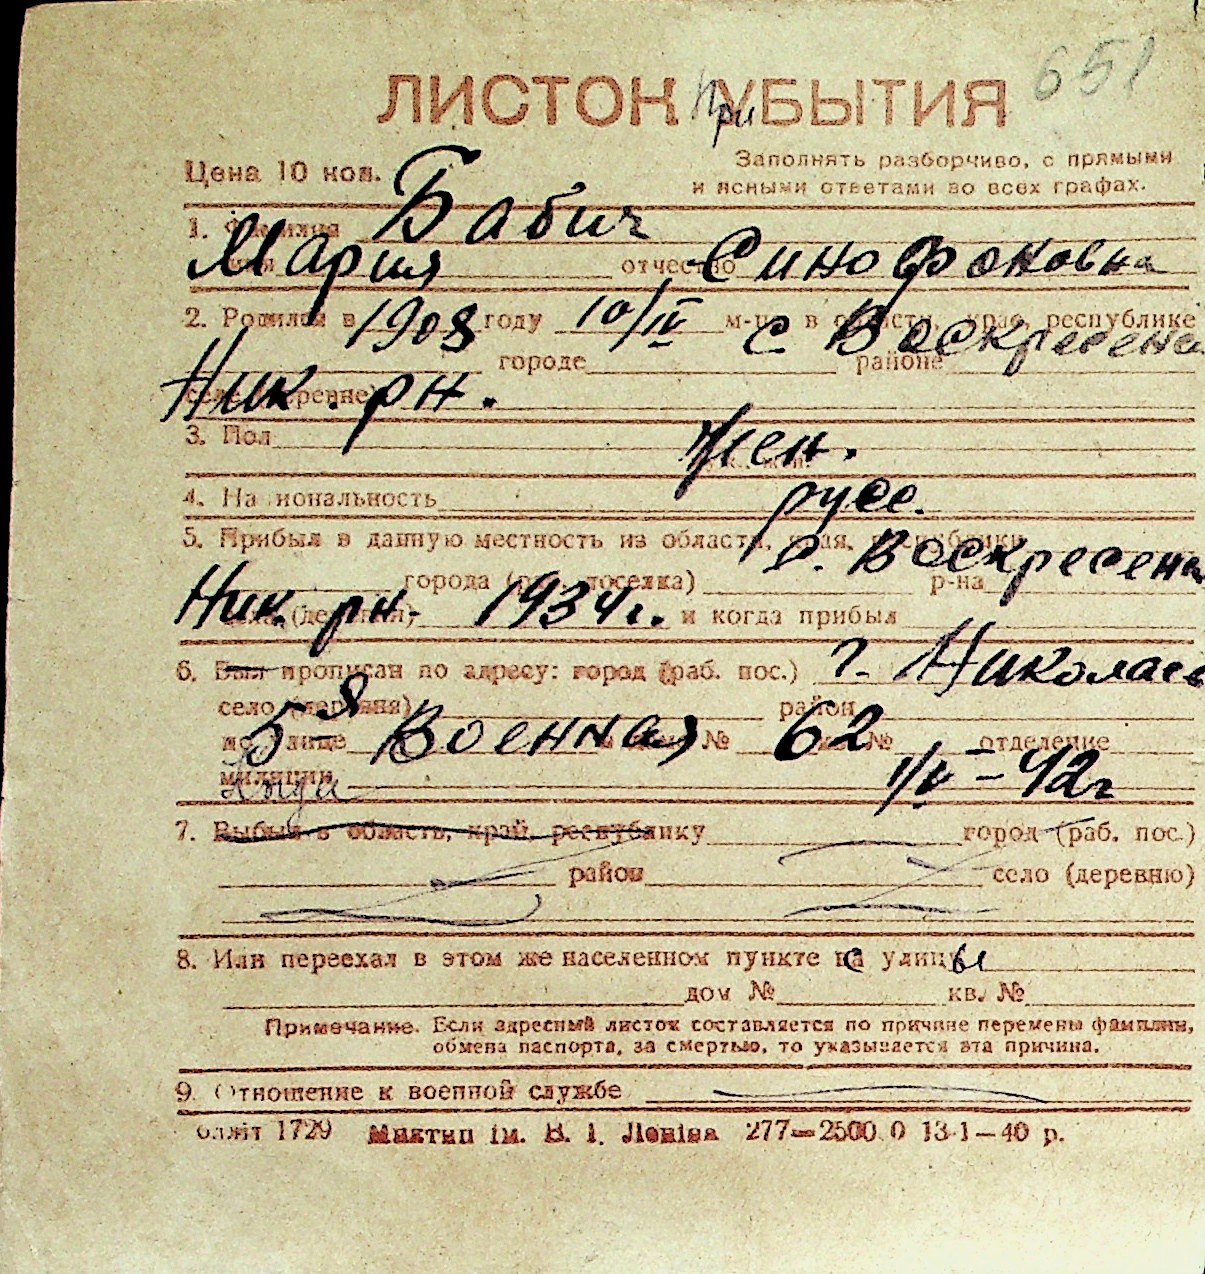 651
ЛИСТОК При УБЫТИЯ
Цена 10 коп.
Заполнять разборчиво, с прямыми
и ясными ответами во всех графах.
1. Фамилия Бабич
имя Мария отчество Синофоновна
2. Родился в 1908 году 10/IV м-ца в области, крае, республике с Воскресенс
городе районе
селе (деревне) Ник. рн.
3. Пол жен.
4. Национальность русс.
5. Прибыл в данную местность из области, края, республики с. Воскресенс
города (раб. поселка) р-на
села (деревни) Ник. рн. 1934 г. и когда прибыл
6. Был прописан по адресу: город (раб. пос.) г. Николаев
село (деревня) район
по улице 5-я Военная № 62 кв. № отделение
милиции 1/IV-42г
7. Выбыл в область, край, республику город (раб. пос.)
район село (деревню)
8. Или переехал в этом же населенном пункте с улицы
дом № кв. №
Примечание. Если адресный листок составляется по причине перемены фамилии,
обмена паспорта, за смертью, то указывается эта причина.
9. Отношение к военной службе
1729 Миктип ім. В. І. Леніна 277—2500.0 13-1—40 р.